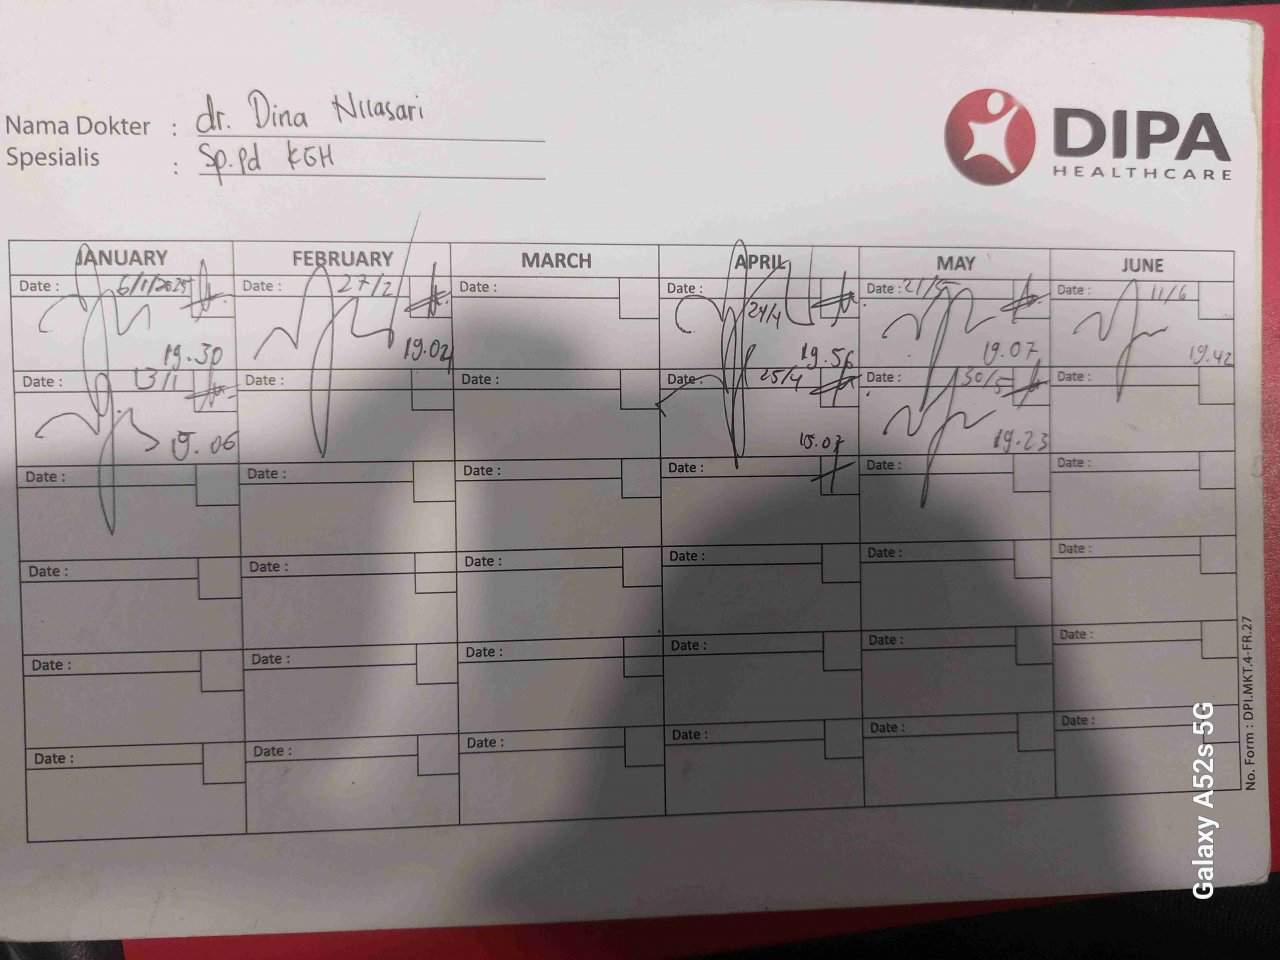 Nama Dokter : dr. Dina Nilasari
Spesialis : Sp.pd KGH
DIPA
HEALTHCARE
JANUARY FEBRUARY MARCH APRIL MAY JUNE
Date : 6/1/2025 Date : 27/2 Date : Date : 24/4 Date : 21/5 Date : 11/6
19.30 19.02 19.56 19.07 19.42
Date : 13/1 Date : Date : Date : 25/4 Date : 30/5 Date :
15.07 19.23
Date : Date : Date : Date : Date : Date :
Date : Date : Date : Date : Date : Date :
Date : Date : Date : Date : Date : Date :
Date : Date : Date : Date : Date : Date :
No. Form : DPI.MKT.4-FR.27
Galaxy A52s 5G